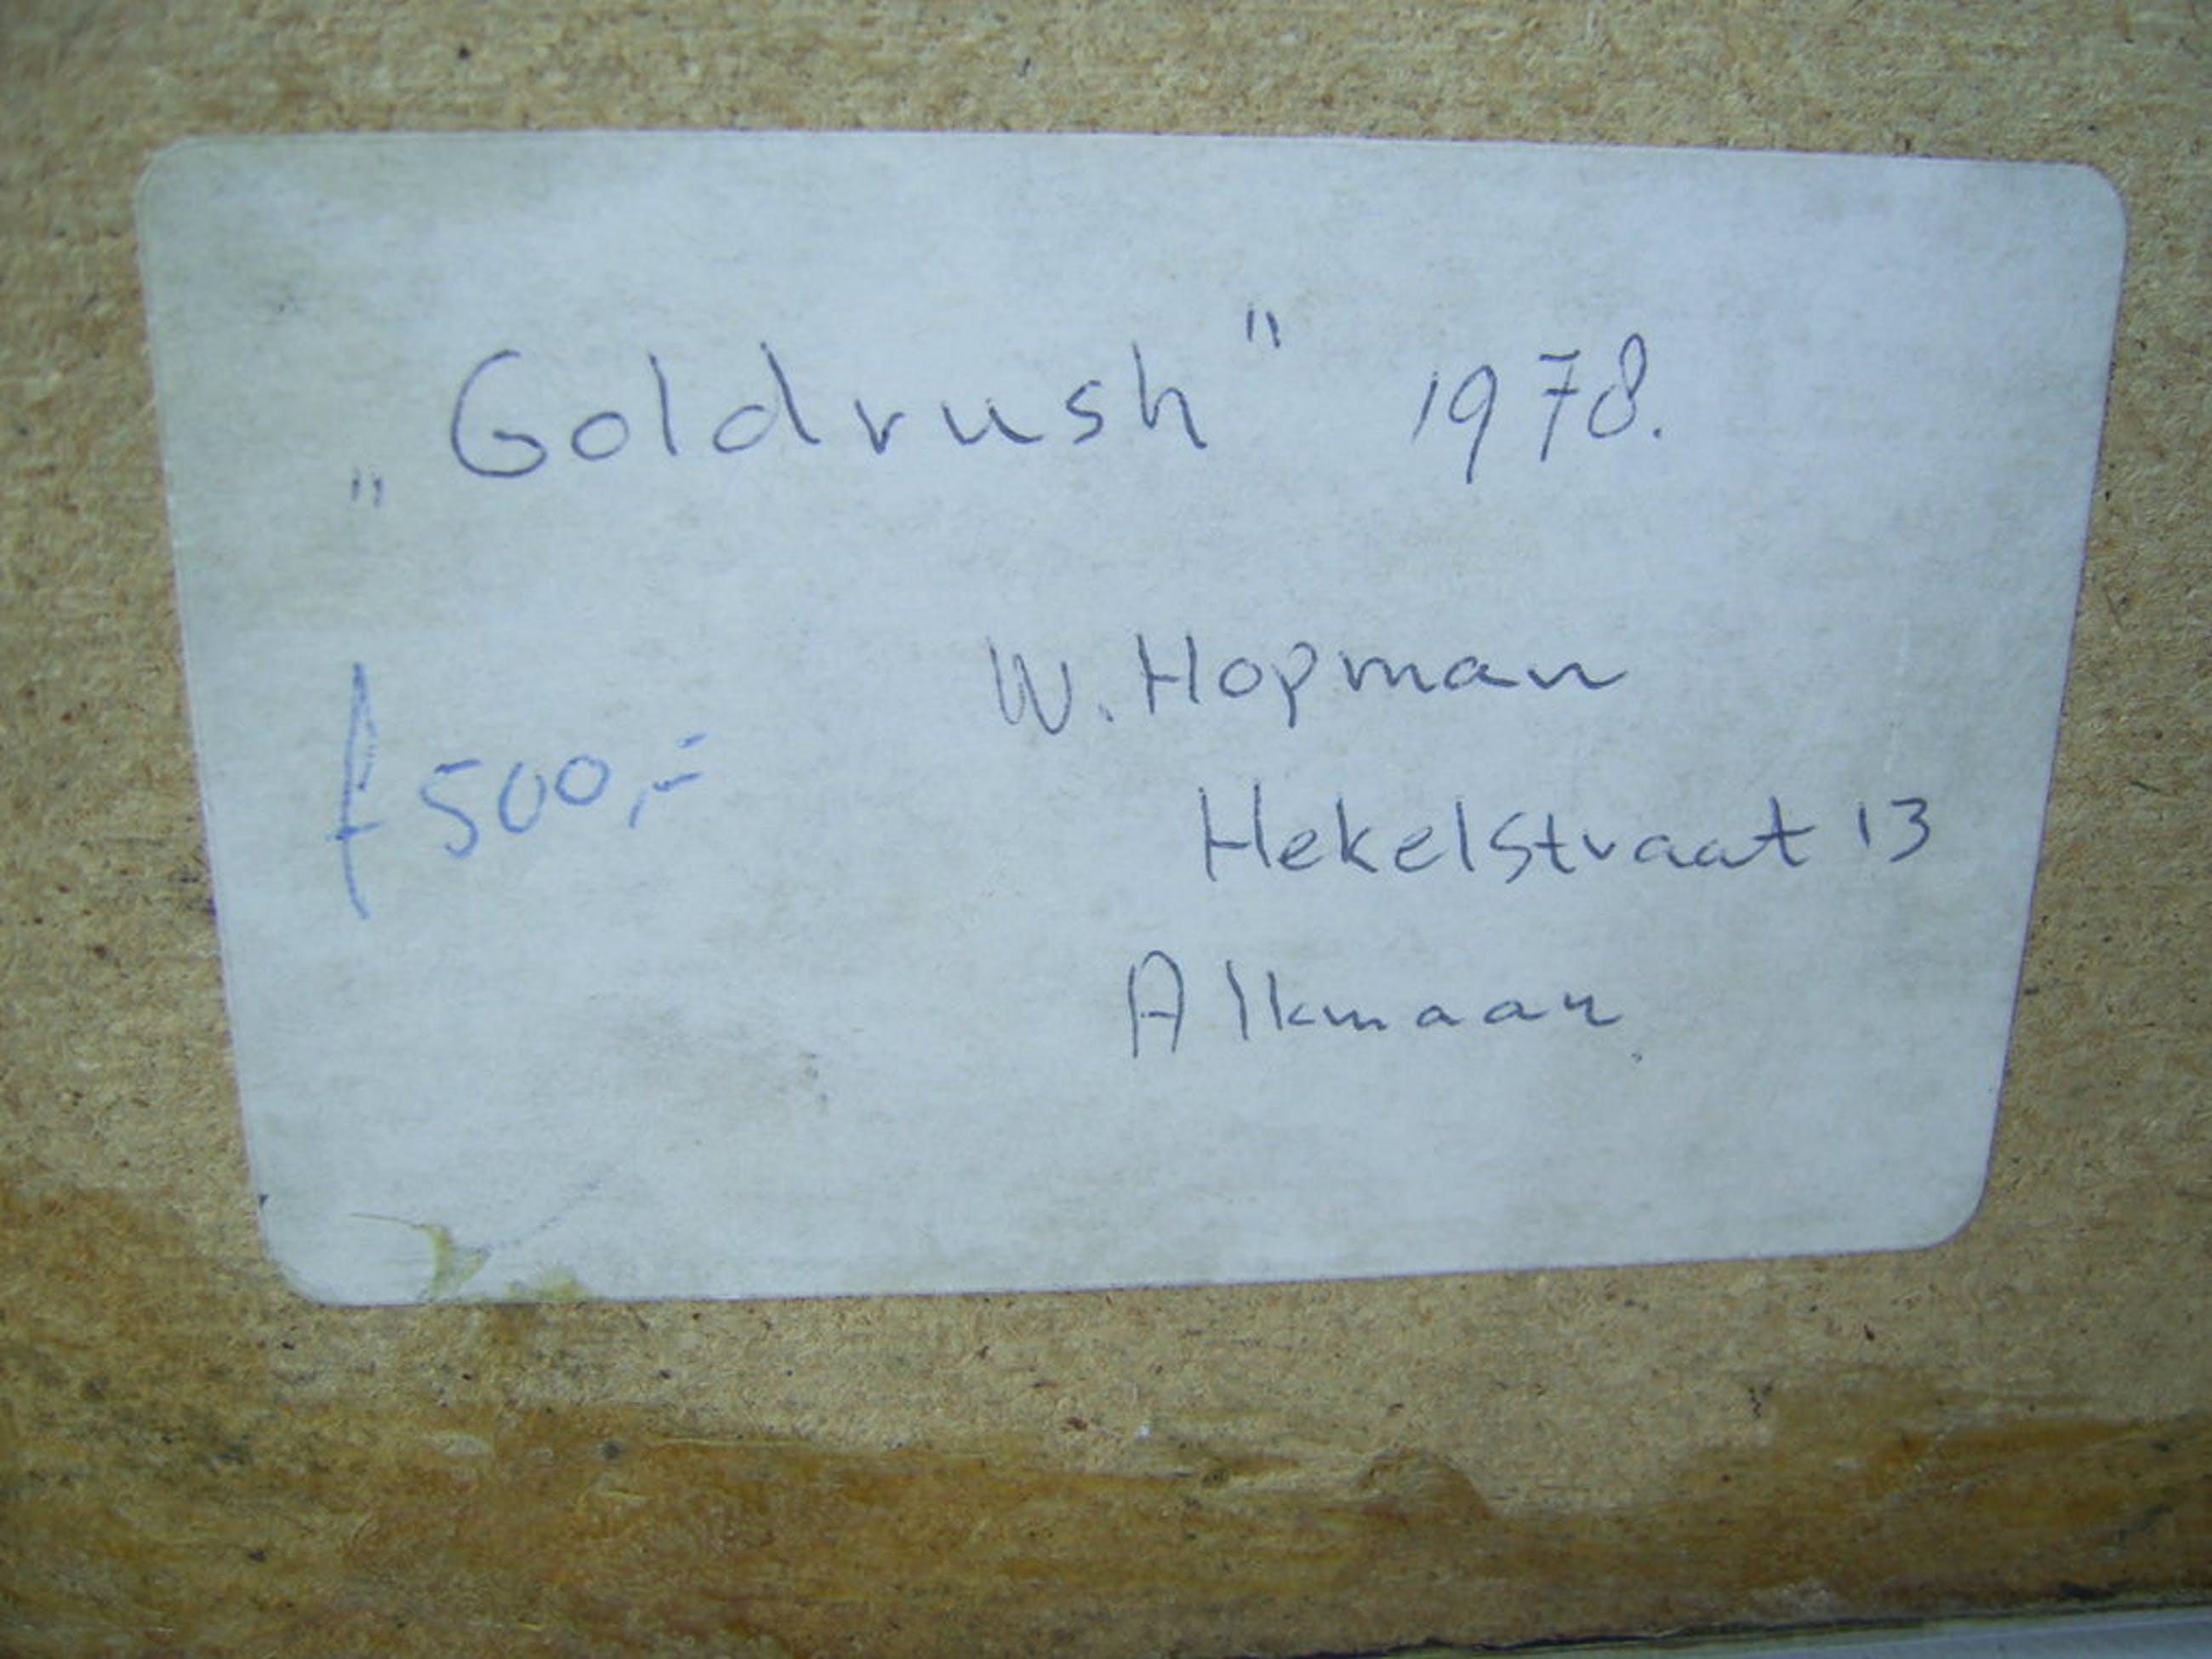 „Goldrush" 1978.
W. Hopman
f 500,=
Hekelstraat 13
Alkmaar